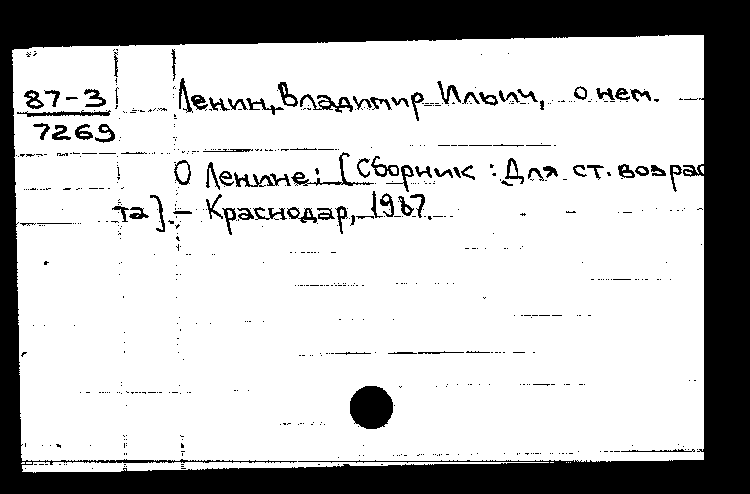 87-3
7269
Ленин, Владимир Ильич, о нем.
О Ленине: [Сборник : Для ст. возрас
та]. – Краснодар, 1987.